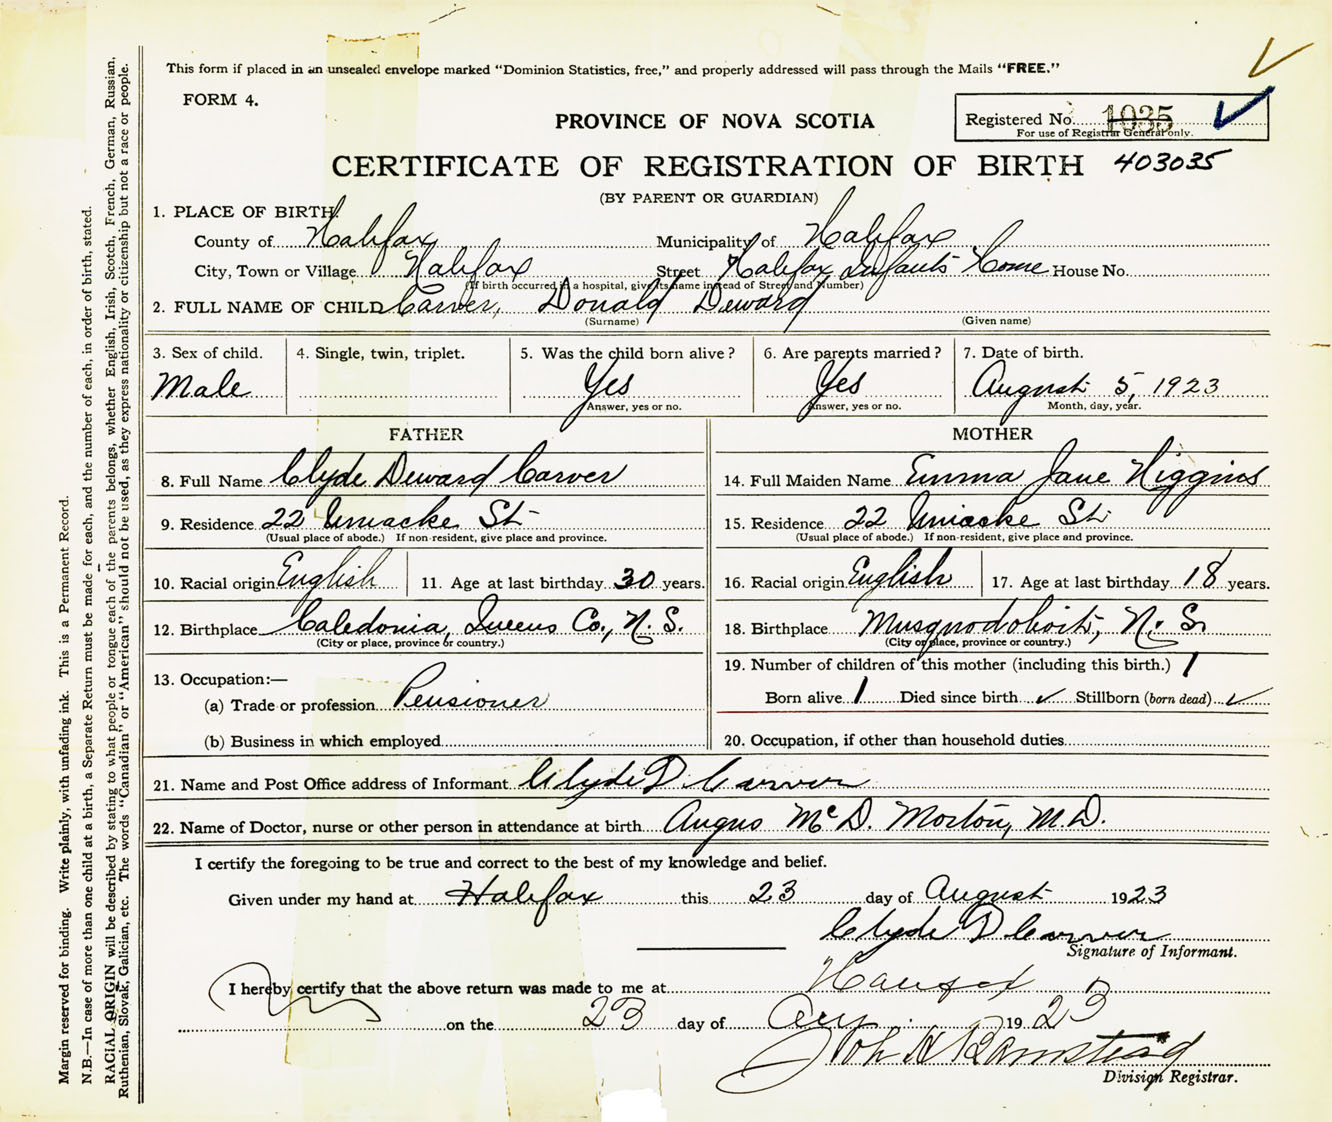 This form if placed in an unsealed envelope marked "Dominion Statistics, free," and properly addressed will pass through the Mails "FREE."
FORM 4.
PROVINCE OF NOVA SCOTIA
Registered No. 1035
For use of Registrar General only.
CERTIFICATE OF REGISTRATION OF BIRTH 403035
(BY PARENT OR GUARDIAN)
1. PLACE OF BIRTH.
County of Halifax Municipality of Halifax
City, Town or Village Halifax Street Halifax Infants Home House No.
(If birth occurred in a hospital, give its name instead of Street and Number)
2. FULL NAME OF CHILD Carver, Donald Deward
(Surname) (Given name)
3. Sex of child. 4. Single, twin, triplet. 5. Was the child born alive? 6. Are parents married? 7. Date of birth.
Male Yes Yes August 5, 1923
Answer, yes or no. Answer, yes or no. Month, day, year.
FATHER MOTHER
8. Full Name Clyde Deward Carver 14. Full Maiden Name Emma Jane Higgins
9. Residence 22 Uniacke St 15. Residence 22 Uniacke St.
(Usual place of abode.) If non-resident, give place and province. (Usual place of abode.) If non-resident, give place and province.
10. Racial origin English 11. Age at last birthday 30 years. 16. Racial origin English 17. Age at last birthday 18 years.
12. Birthplace Caledonia, Queens Co., N. S. 18. Birthplace Musquodoboit, N. S.
(City or place, province or country.) (City or place, province or country.)
13. Occupation:— 19. Number of children of this mother (including this birth.) 1
(a) Trade or profession Pensioner Born alive 1 Died since birth ✓ Stillborn (born dead) ✓
(b) Business in which employed 20. Occupation, if other than household duties
21. Name and Post Office address of Informant Clyde D Carver
22. Name of Doctor, nurse or other person in attendance at birth Angus McD. Morton, M.D.
I certify the foregoing to be true and correct to the best of my knowledge and belief.
Given under my hand at Halifax this 23 day of August 1923
Clyde D Carver
Signature of Informant.
I hereby certify that the above return was made to me at Halifax
on the 23 day of Aug 1923
Division Registrar.
Margin reserved for binding. Write plainly, with unfading ink. This is a Permanent Record.
N.B.—In case of more than one child at a birth, a Separate Return must be made for each, and the number of each, in order of birth, stated.
RACIAL ORIGIN will be described by stating to what people or tongue each of the parents belongs, whether English, Irish, Scotch, French, German, Russian,
Ruthenian, Slovak, Galician, etc. The words "Canadian" or "American" should not be used, as they express nationality or citizenship but not a race or people.